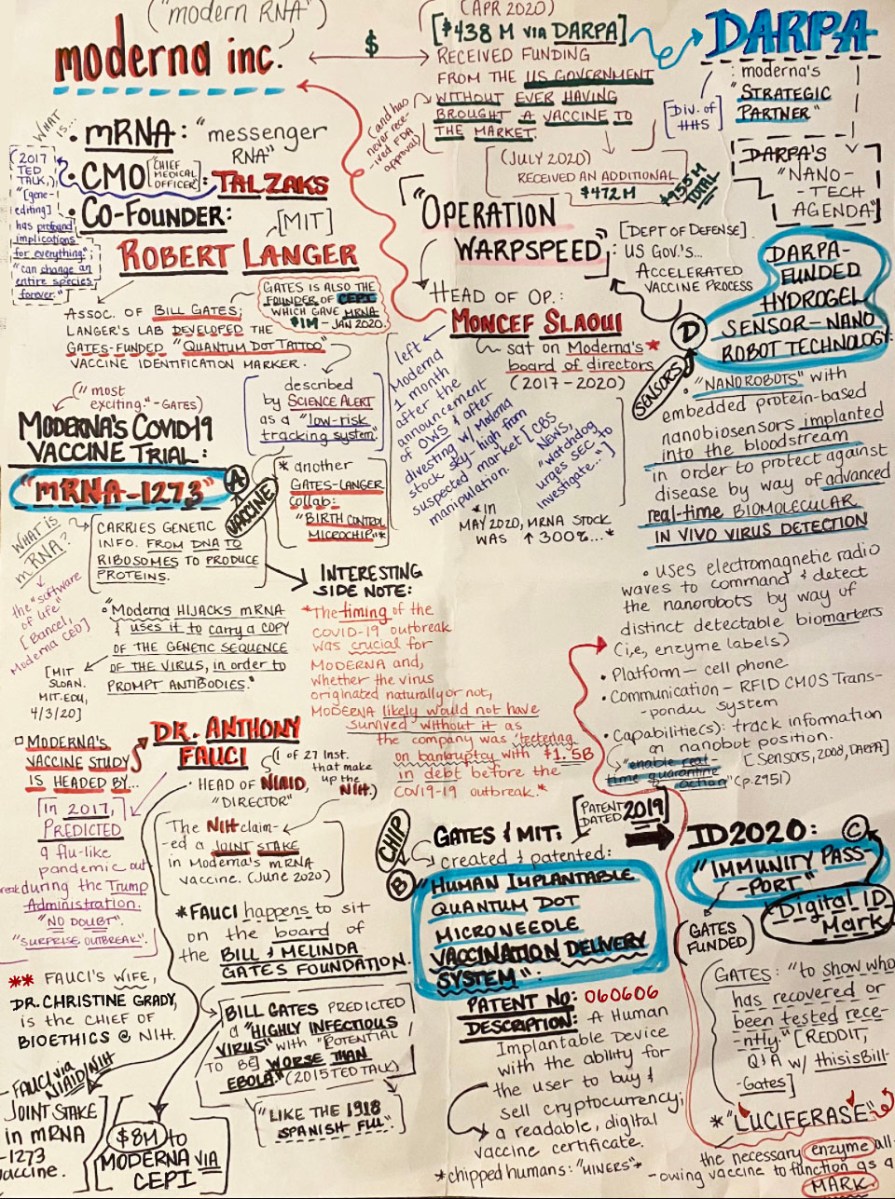 ("modern RNA")
moderna inc.
$
(APR 2020)
[$438 M via DARPA]
RECEIVED FUNDING
FROM THE US GOVERNMENT
WITHOUT EVER HAVING
BROUGHT A VACCINE TO
THE MARKET.
(and has
never rece-
ived FDA
approval)
(JULY 2020)
RECEIVED AN ADDITIONAL
$472 M
$955 M
TOTAL
DARPA
: moderna's
"STRATEGIC
PARTNER"
[Div. of
HHS]
DARPA'S
"NANO-
-TECH
AGENDA"
WHAT
IS...
• mRNA: "messenger
RNA"
• CMO [CHIEF
MEDICAL
OFFICER]: TAL ZAKS
• CO-FOUNDER:
[MIT]
ROBERT LANGER
(2017
TED
TALK,)
"[gene-
editing]
has profound
implications
for everything";
"can change an
entire species
forever."
ASSOC. OF BILL GATES;
LANGER'S LAB DEVELOPED THE
GATES-FUNDED "QUANTUM DOT TATTOO"
VACCINE IDENTIFICATION MARKER.
GATES IS ALSO THE
FOUNDER OF CEPI
WHICH GAVE MRNA
$1M - JAN 2020.
described
by SCIENCE ALERT
as a "low-risk
tracking system"
* another
GATES-LANGER
collab:
"BIRTH CONTROL
MICROCHIP"*
"OPERATION
WARPSPEED"
[DEPT OF DEFENSE]
US GOV.'S...
ACCELERATED
VACCINE PROCESS
HEAD OF OP.:
MONCEF SLAOUI
sat on Moderna's *
board of directors
(2017-2020)
left
Moderna
1 month
after the
announcement
of OWS & after
divesting w/ Moderna
stock sky-high from
suspected market
manipulation.
[CBS
NEWS,
"watchdog
urges SEC to
investigate..."]
*in
MAY 2020, MRNA STOCK
WAS ↑ 300%...*
DARPA-
FUNDED
HYDROGEL
SENSOR-NANO
ROBOT TECHNOLOGY
D
SENSORS
• "NANOROBOTS" with
embedded protein-based
nanobiosensors implanted
into the bloodstream
in order to protect against
disease by way of advanced
real-time BIOMOLECULAR
IN VIVO VIRUS DETECTION
• USES electromagnetic radio
waves to command & detect
the nanorobots by way of
distinct detectable biomarkers
(i.e, enzyme labels)
• Platform - cell phone
• Communication - RFID CMOS Trans-
pondu system
• Capabilitie(s): track information
on nanobot position.
"enable real-
time quarantine
action"
[Sensors, 2008, DARPA]
(p. 2951)
("most
exciting."-GATES)
MODERNA'S COVID-19
VACCINE TRIAL:
"MRNA-1273"
A
VACCINE
WHAT IS
mRNA?
CARRIES GENETIC
INFO. FROM DNA TO
RIBOSOMES TO PRODUCE
PROTEINS.
the "software
of life"
[Bancel,
Moderna CEO]
• "Moderna HIJACKS mRNA
& uses it to carry a COPY
OF THE GENETIC SEQUENCE
OF THE VIRUS, in order to
PROMPT ANTIBODIES."
[MIT
SLOAN.
MIT.EDU,
4/3/20]
INTERESTING
SIDE NOTE:
*The timing of the
COVID-19 outbreak
was crucial for
MODERNA and,
whether the virus
originated naturally or not,
MODERNA likely would not have
survived without it as
the company was "teetering
on bankruptcy with $1.5B
in debt before the
COV19-19 outbreak.*
MODERNA'S
VACCINE STUDY
IS HEADED BY...
DR. ANTHONY
FAUCI
(1 of 27 Inst.
that make
up the
NIH.)
• HEAD OF NIAID,
"DIRECTOR"
[In 2017,]
PREDICTED
a flu-like
pandemic out-
break during the Trump
Administration.
"NO DOUBT".
"SURPRISE OUTBREAK".
The NIH claim-
ed a JOINT STAKE
in Moderna's mRNA
vaccine. (June 2020)
*FAUCI happens to sit
on the board of
the BILL & MELINDA
GATES FOUNDATION.
** FAUCI'S WIFE,
DR. CHRISTINE GRADY,
is the CHIEF OF
BIOETHICS @ NIH.
BILL GATES PREDICTED
a "HIGHLY INFECTIOUS
VIRUS" with "POTENTIAL
TO BE WORSE THAN
EBOLA." (2015 TED TALK)
"LIKE THE 1918
SPANISH FLU."
- FAUCI via
NIAID/NIH
JOINT STAKE
in mRNA
-1273
vaccine.
$8M to
MODERNA VIA
CEPI
CHIP
B
GATES & MIT:
created & patented:
[PATENT
DATED 2019]
"HUMAN IMPLANTABLE
QUANTUM DOT
MICRONEEDLE
VACCINATION DELIVERY
SYSTEM":
PATENT NO: 060606
DESCRIPTION: A Human
Implantable Device
with the ability for
the user to buy &
sell cryptocurrency;
a readable, digital
vaccine certificate.
*chipped humans: "MINERS"*
ID2020:
C
"IMMUNITY PASS-
-PORT"
*Digital ID
Mark
(GATES
FUNDED)
GATES: "to show who
has recovered or
been tested rece-
ntly." [REDDIT,
Q&A w/ thisisBill-
-Gates]
*"LUCIFERASE"
the necessary enzyme all-
-owing vaccine to function as a
MARK.